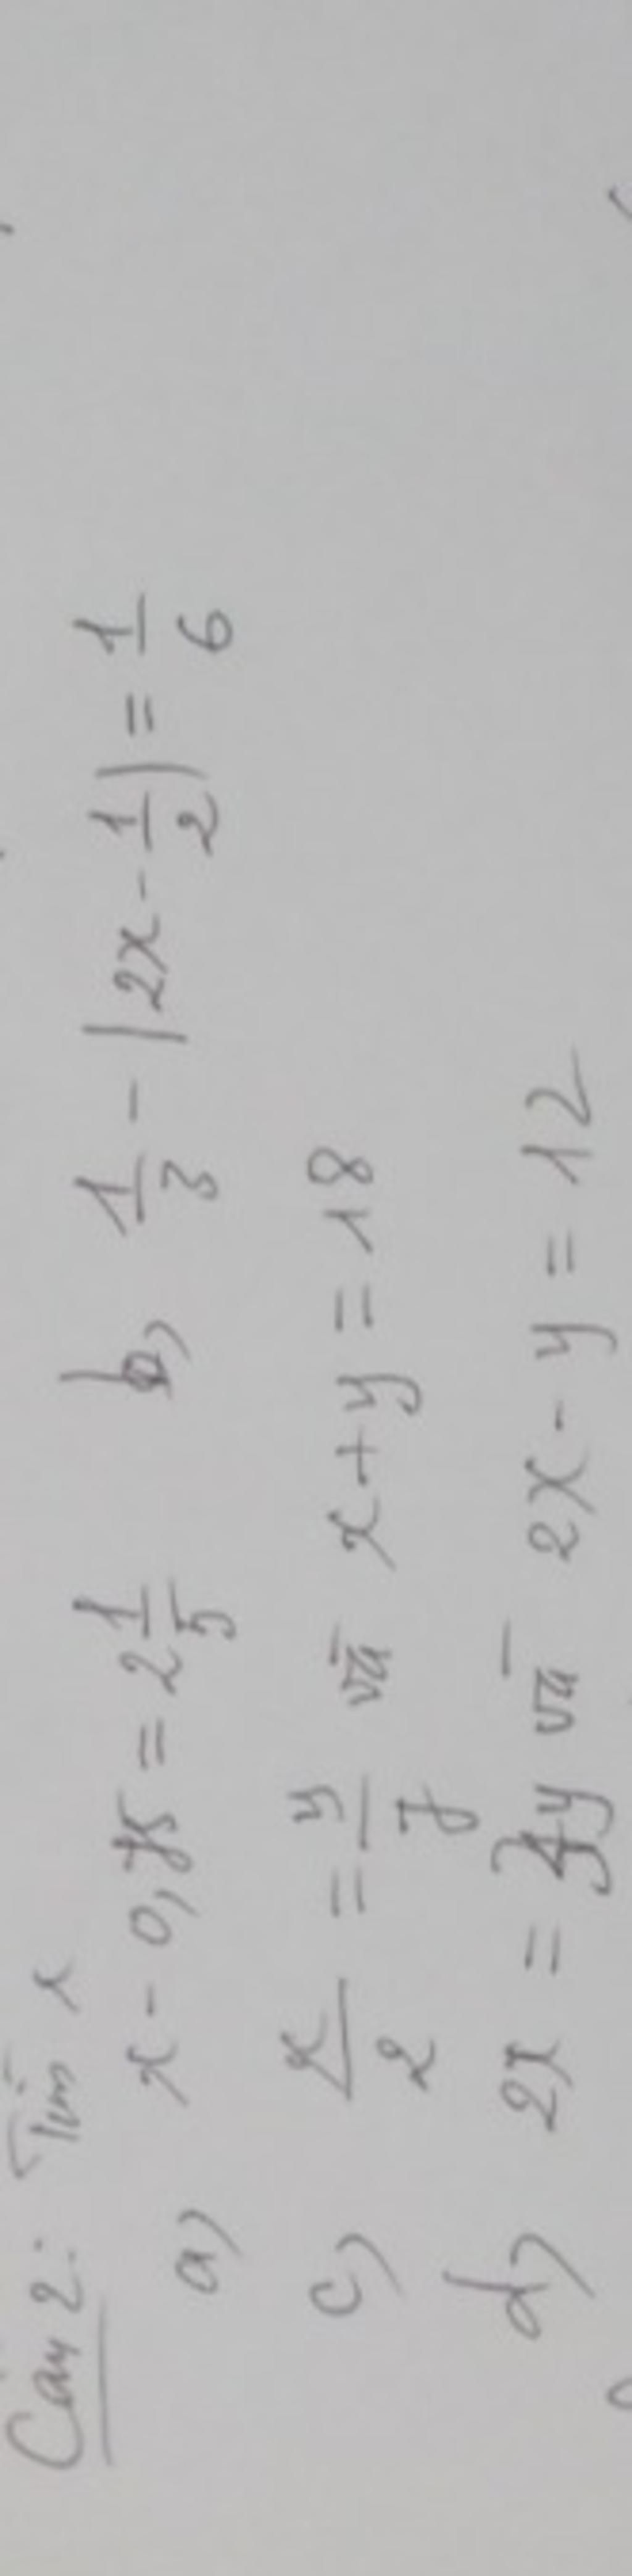 Câu 2: Tìm x
a, x - 0,75 = 2 1/5 b, 1/3 - |2x - 1/2| = 1/6
c, x/2 = y/7 và x + y = 18
d, 2x = y và 2x - y = 12